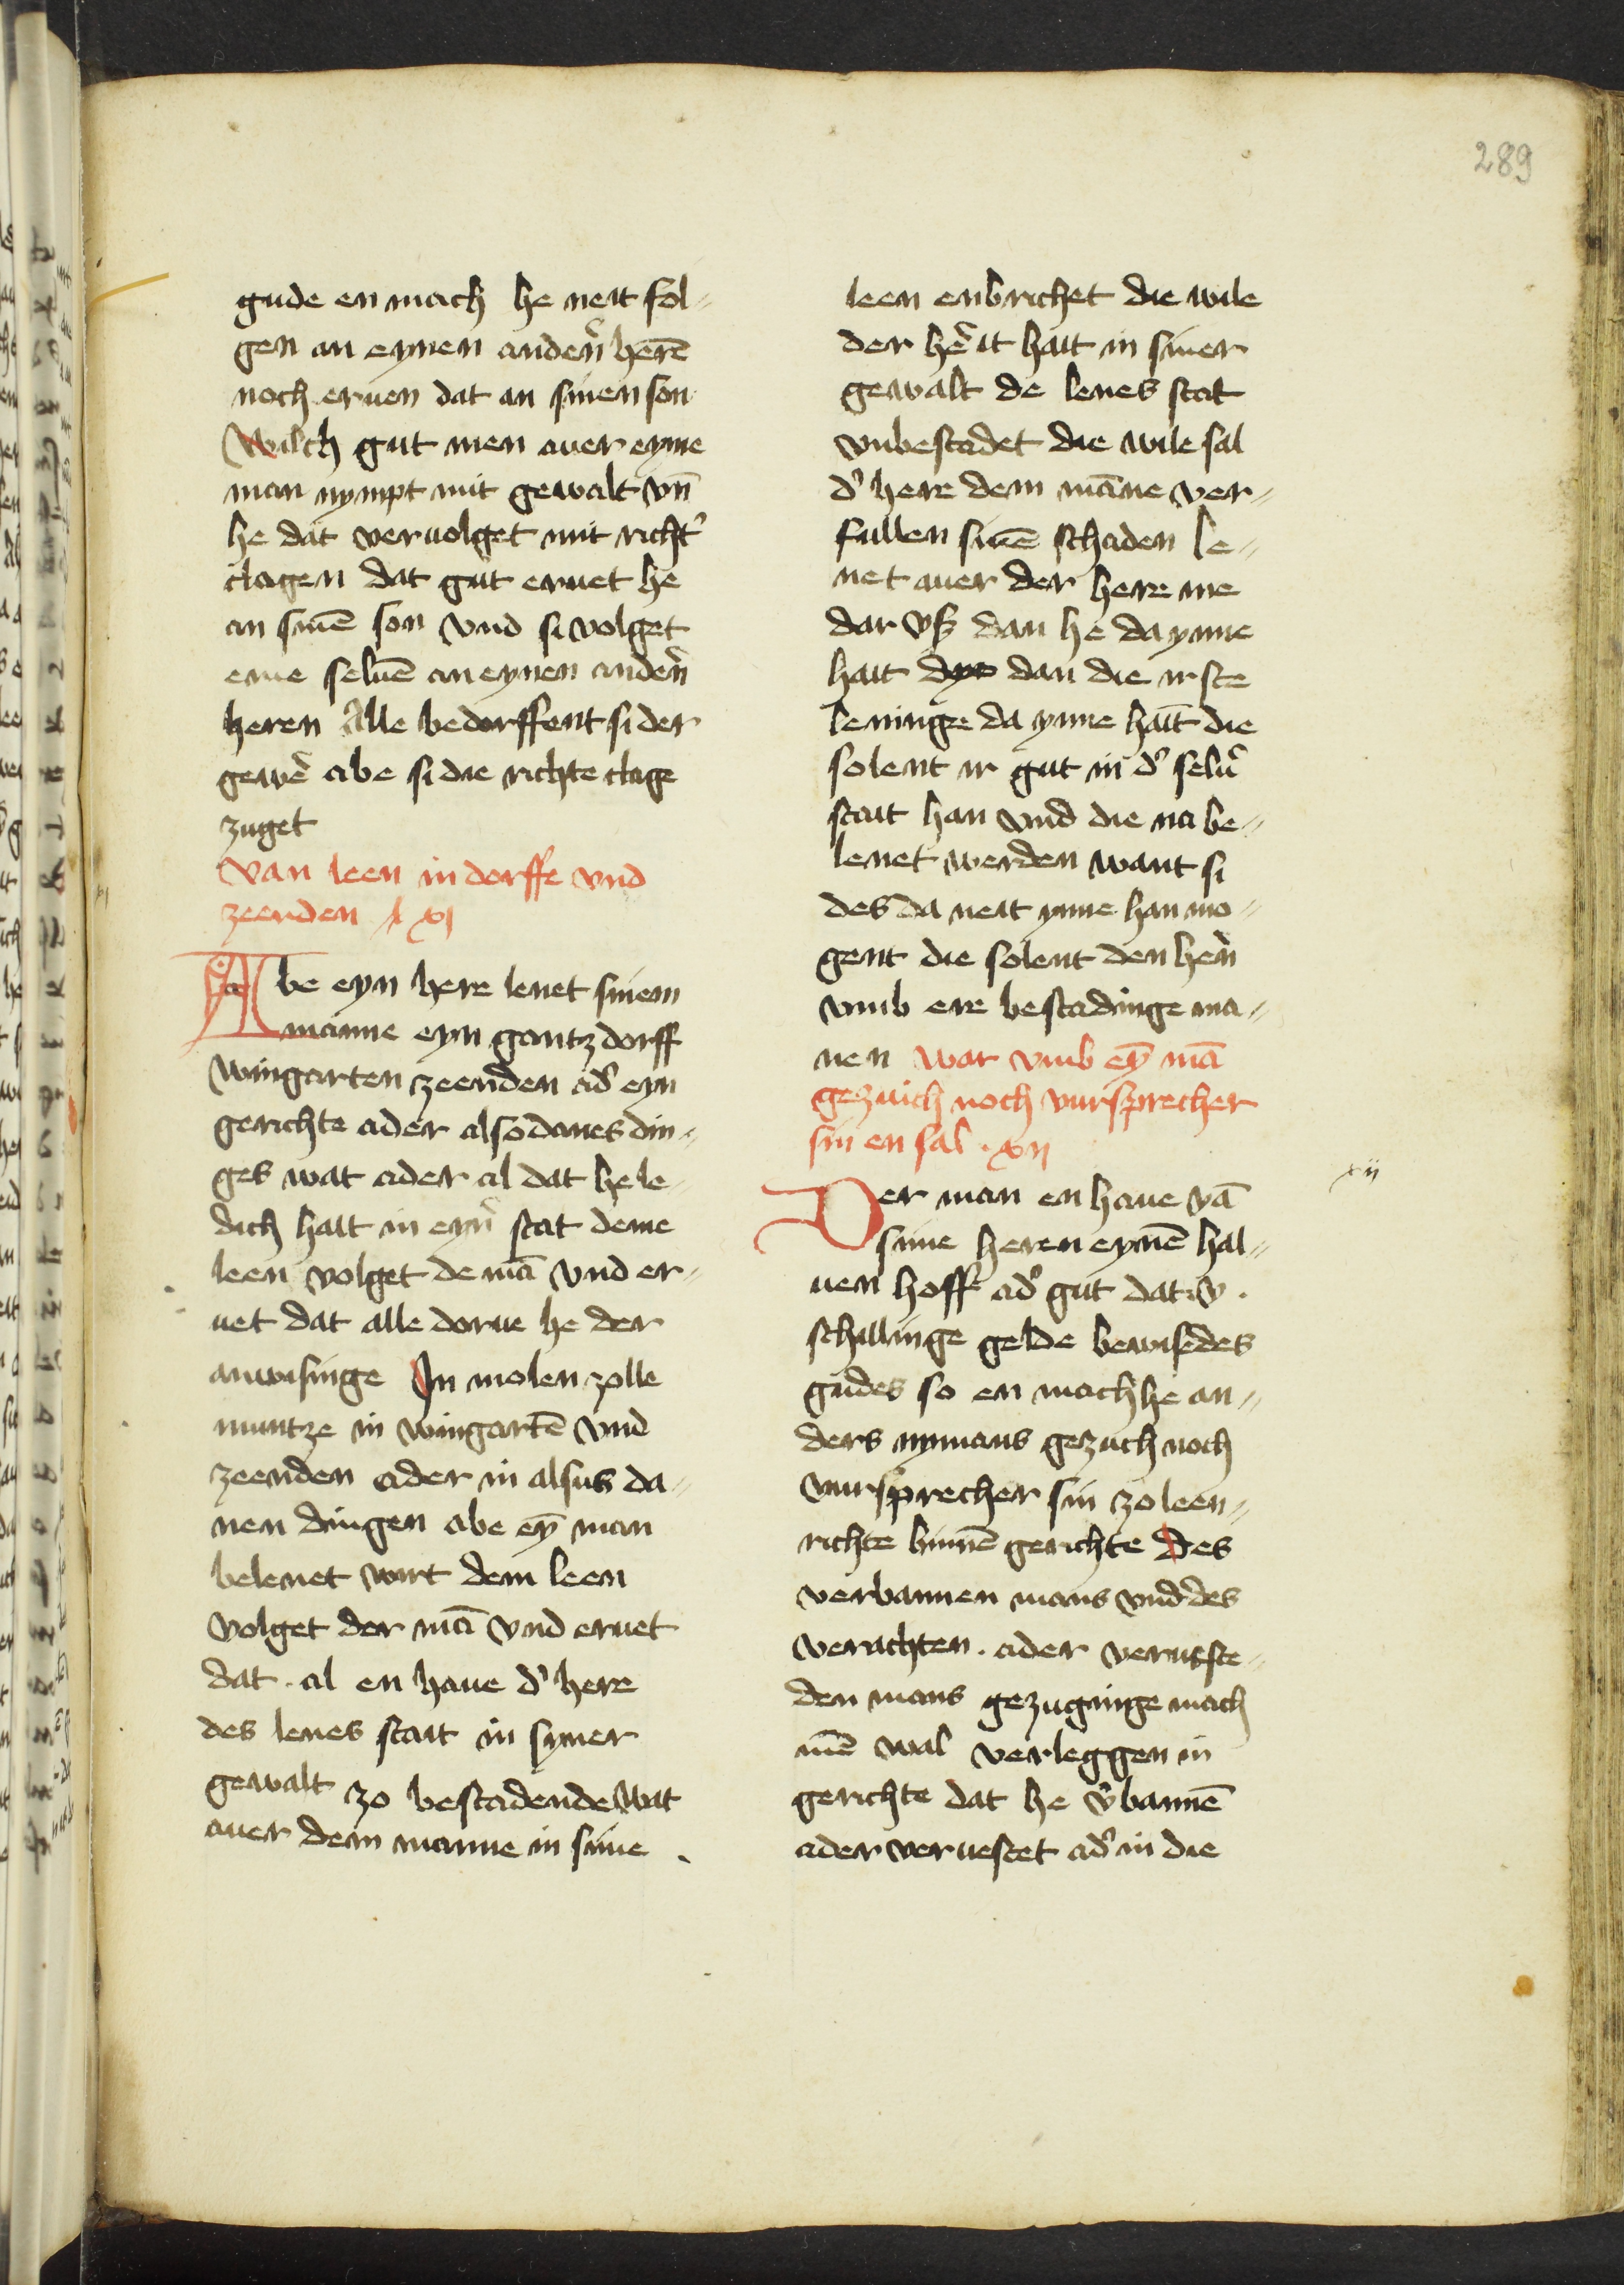 289
gude en mach he neit fol-
gen an eynen andeñ herē
noch eruen dat an sinen son
Wilch gut men auer eyme
man nympt mit gewalt vn̄
he dat veruolget mit richt'
clagen dat gut eruet he
an sinē son vnd si volget
eme seluē an eynen andeñ
heren Alle bedorffent si der
gewe᷑ abe si die richte clage
zuget
van leen in dorffe vnd
zeenden xj
Abe eyn here lenet sinem
manne eyn gantz dorff
wingarten zeenden ad' eyn
gerichte ader alsodanes din-
ges wat ader al dat he le-
dich hait in eyn' stat deme
leen volget de mā vnd er-
uet dat alle dorue he der
anwisinge In molen zolle
muntze in wingartē vnd
zeenden ader in alsus da-
nen dingen abe ey̅ man
belenet wirt dem leen
volget der mā vnd eruet
dat . al en haue d' here
des lenes stait in syner
gewalt zo bestadende wat
auer dem manne in sime
leen enbrichet die wile
der he᷑ it hait in siner
gewalt de lenes stat
vnbestadet die wile sal
d' here dem māne ver-
fullen sinē schaden le-
net auer der here me
dar vß dan he da ynne
hait dan die irste
leninge da ynne hait die
solent ir gut in d' selu'
stait han vnd die na be-
lenet werden want si
des da neit ynne han mo-
gent die solent den heñ
vmb ere bestadinge ma-
nen war vmb ey̅ mā
gezuich noch vursprecher
sin en sal . xij
xij
Der man en haue vā
sime heren eynē hal-
uen hoff ad' gut dat .v.
schillinge gelde bewise des
gudes so en mach he an-
ders nymans gezuch noch
vursprecher sin zo leen-
richte binnē gerichte des
verbannen mans vnd des
verachten . ader verueste-
den mans gezuginge mach
mē wal verleggen in
gerichte dat he v'bannē
ader veruestet ad' in die